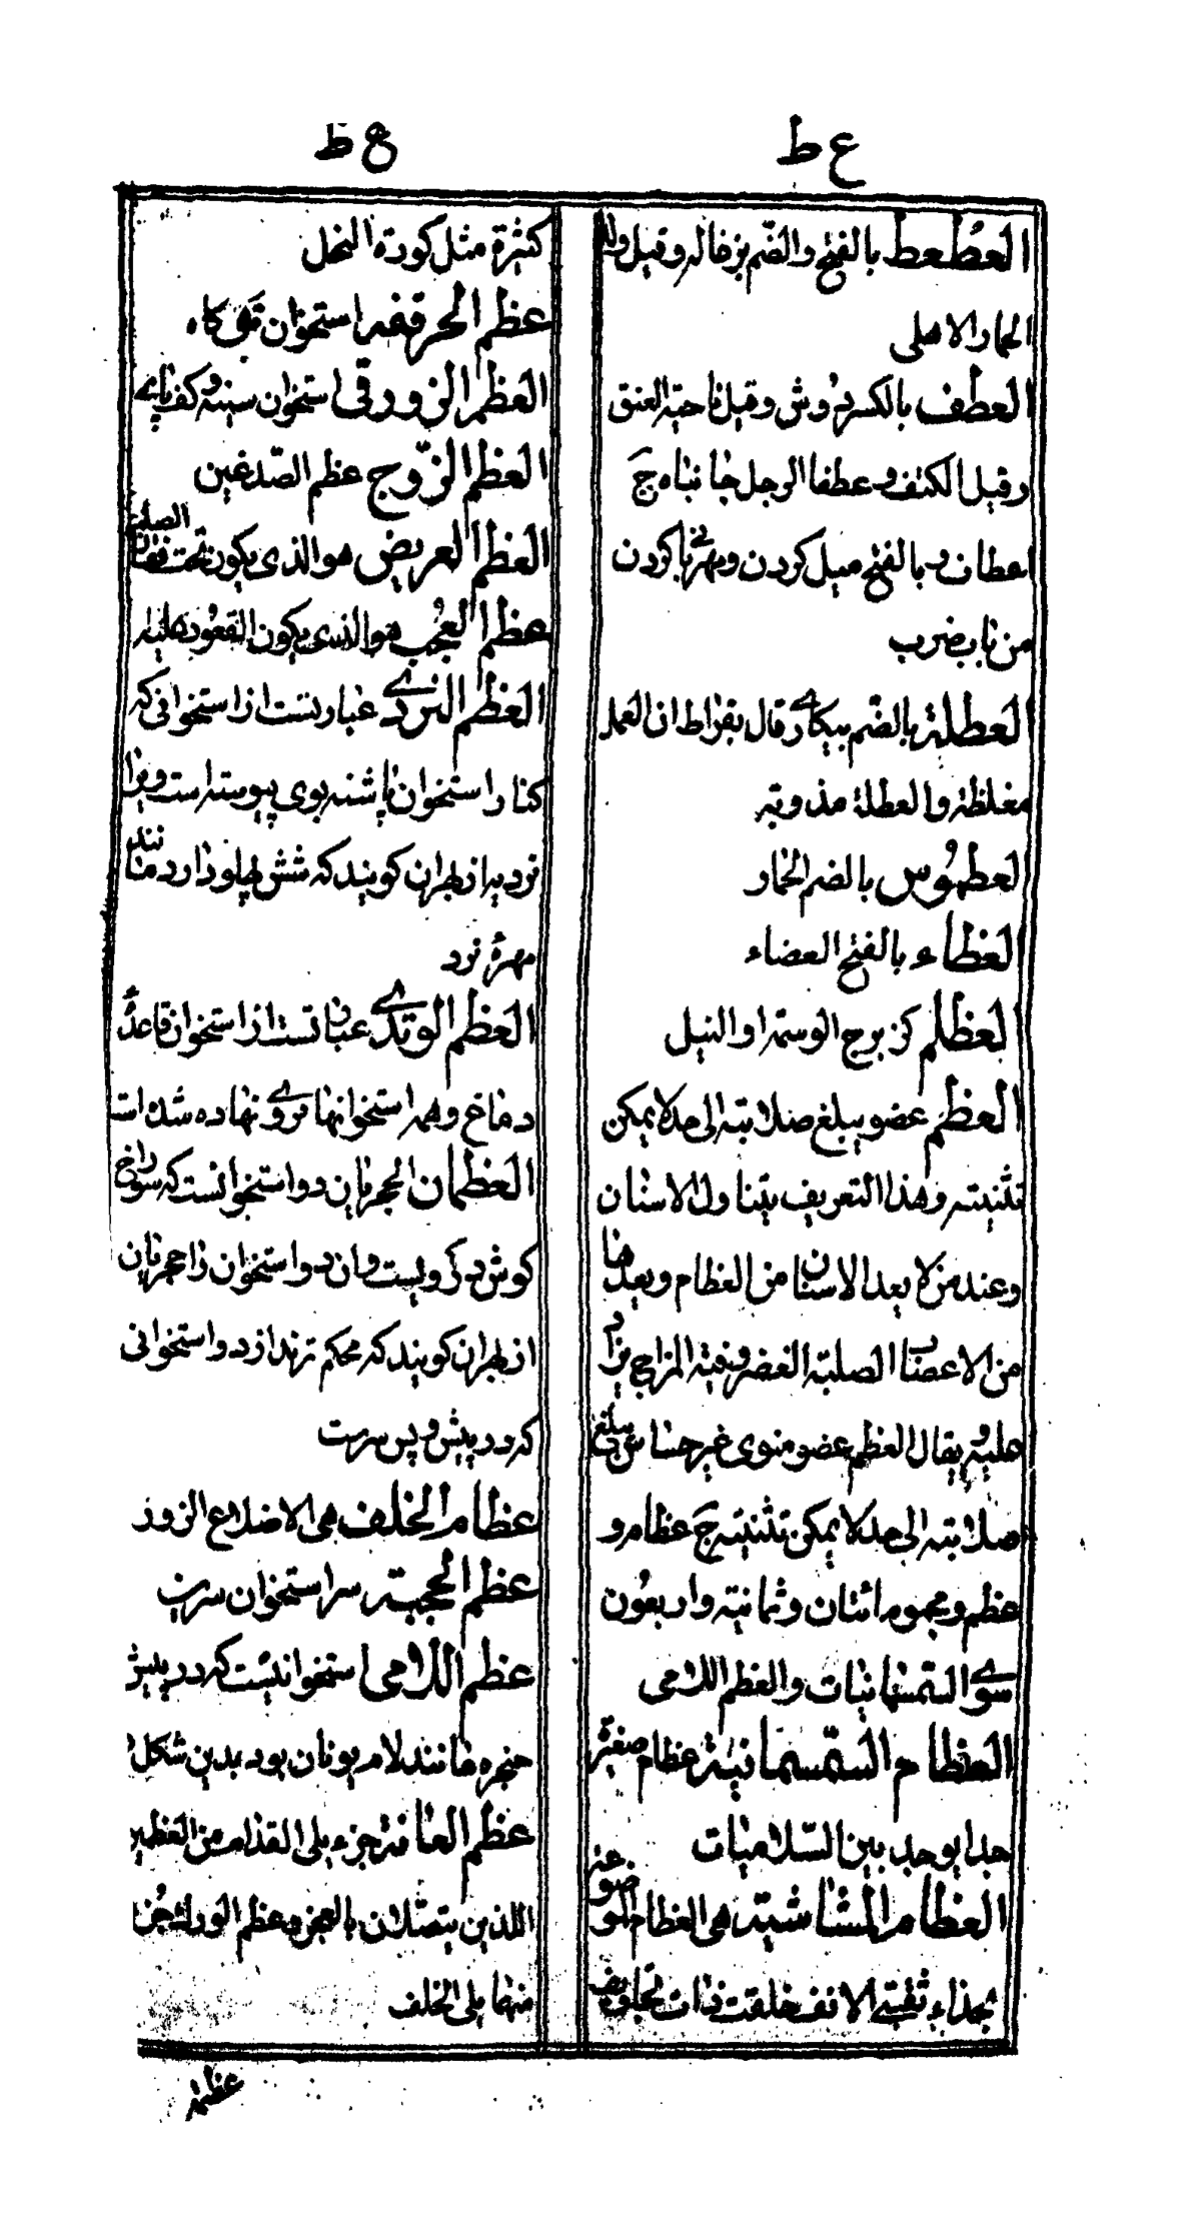 ع ط
العطعط بالفتح والضم بزغاله وقیل ولد
الحمار الاهلی
العطف بالکسر دوش وقیل ناحیة العنق
وقیل الکتف وعطفا الرجل جانباه ج
اعطاف وبالفتح میل کردن ومهربانی کردن
من باب ضرب
العطلة بالضم بیکاری قال بقراط ان العمل
مغلظة والعطلة مذوبة
العطموس بالضم الحمار
العظاء بالفتح العضاء
العظلم کزبرج الوسمة او النیل
العظم عضو یبلغ صلابته الی حد لا یمکن
تثنیته وهذا التعریف یتناول الاسنان
وعند من لا یعد الاسنان من العظام ویعدها
من الاعضاء الصلبة الغضروفیة المزاج یزاد
علیه ویقال العظم عضو منوی غیر حساس یبلغ
صلابته الی حد لا یمکن تثنیته ج عظام و
عظم ومجموعه مائتان وثمانیة واربعون
سوی السمسمانیات والعظم اللامی
العظام السمسمانیة عظام صغیرة
جدا یوجد بین السلامیات
العظام المشاشیة هی العظام الموضوعة
بحذاء ثقبتی الانف خلقت ذات تجاویف
ع ظ
کثیرة مثل کورة النحل
عظم الحرقفه استخوان تهی کاه
العظم الزورقی استخوان سینه وکف پای
العظم الزوج عظم الصدغین
العظم العریض هو الذی یکون تحت فقار الصلب
عظم العجب هو الذی یکون القعود علیه
العظم النردی عبارتست از استخوانی که
کنار استخوان پاشنه بوی پیوسته است ویرا
نردیه از بهر ان کویند که شش پهلو دارد مانند
مهرهٔ نرد
العظم الوتدی عبارتست از استخوان قاعدهٔ
دماغ وهمه استخوانها بروی نهاده شده است
العظمان الحجریان دو استخوانست که سوراخ
کوش در ویست وان دو استخوان را حجریان
از بهر ان کویند که محکم ترند از دو استخوانی
که در پیش وپس سرست
عظام الخلف هی الاضلاع الزور
عظم الحجبة سر استخوان سرین
عظم اللامی استخوانیست که در پیش
حنجره مانند لام یونان بود بدین شکل
عظم العانة جزء یلی القدام من العظمین
اللذین یتصلان بالعجز وعظم الورك جزء
منهما یلی الخلف